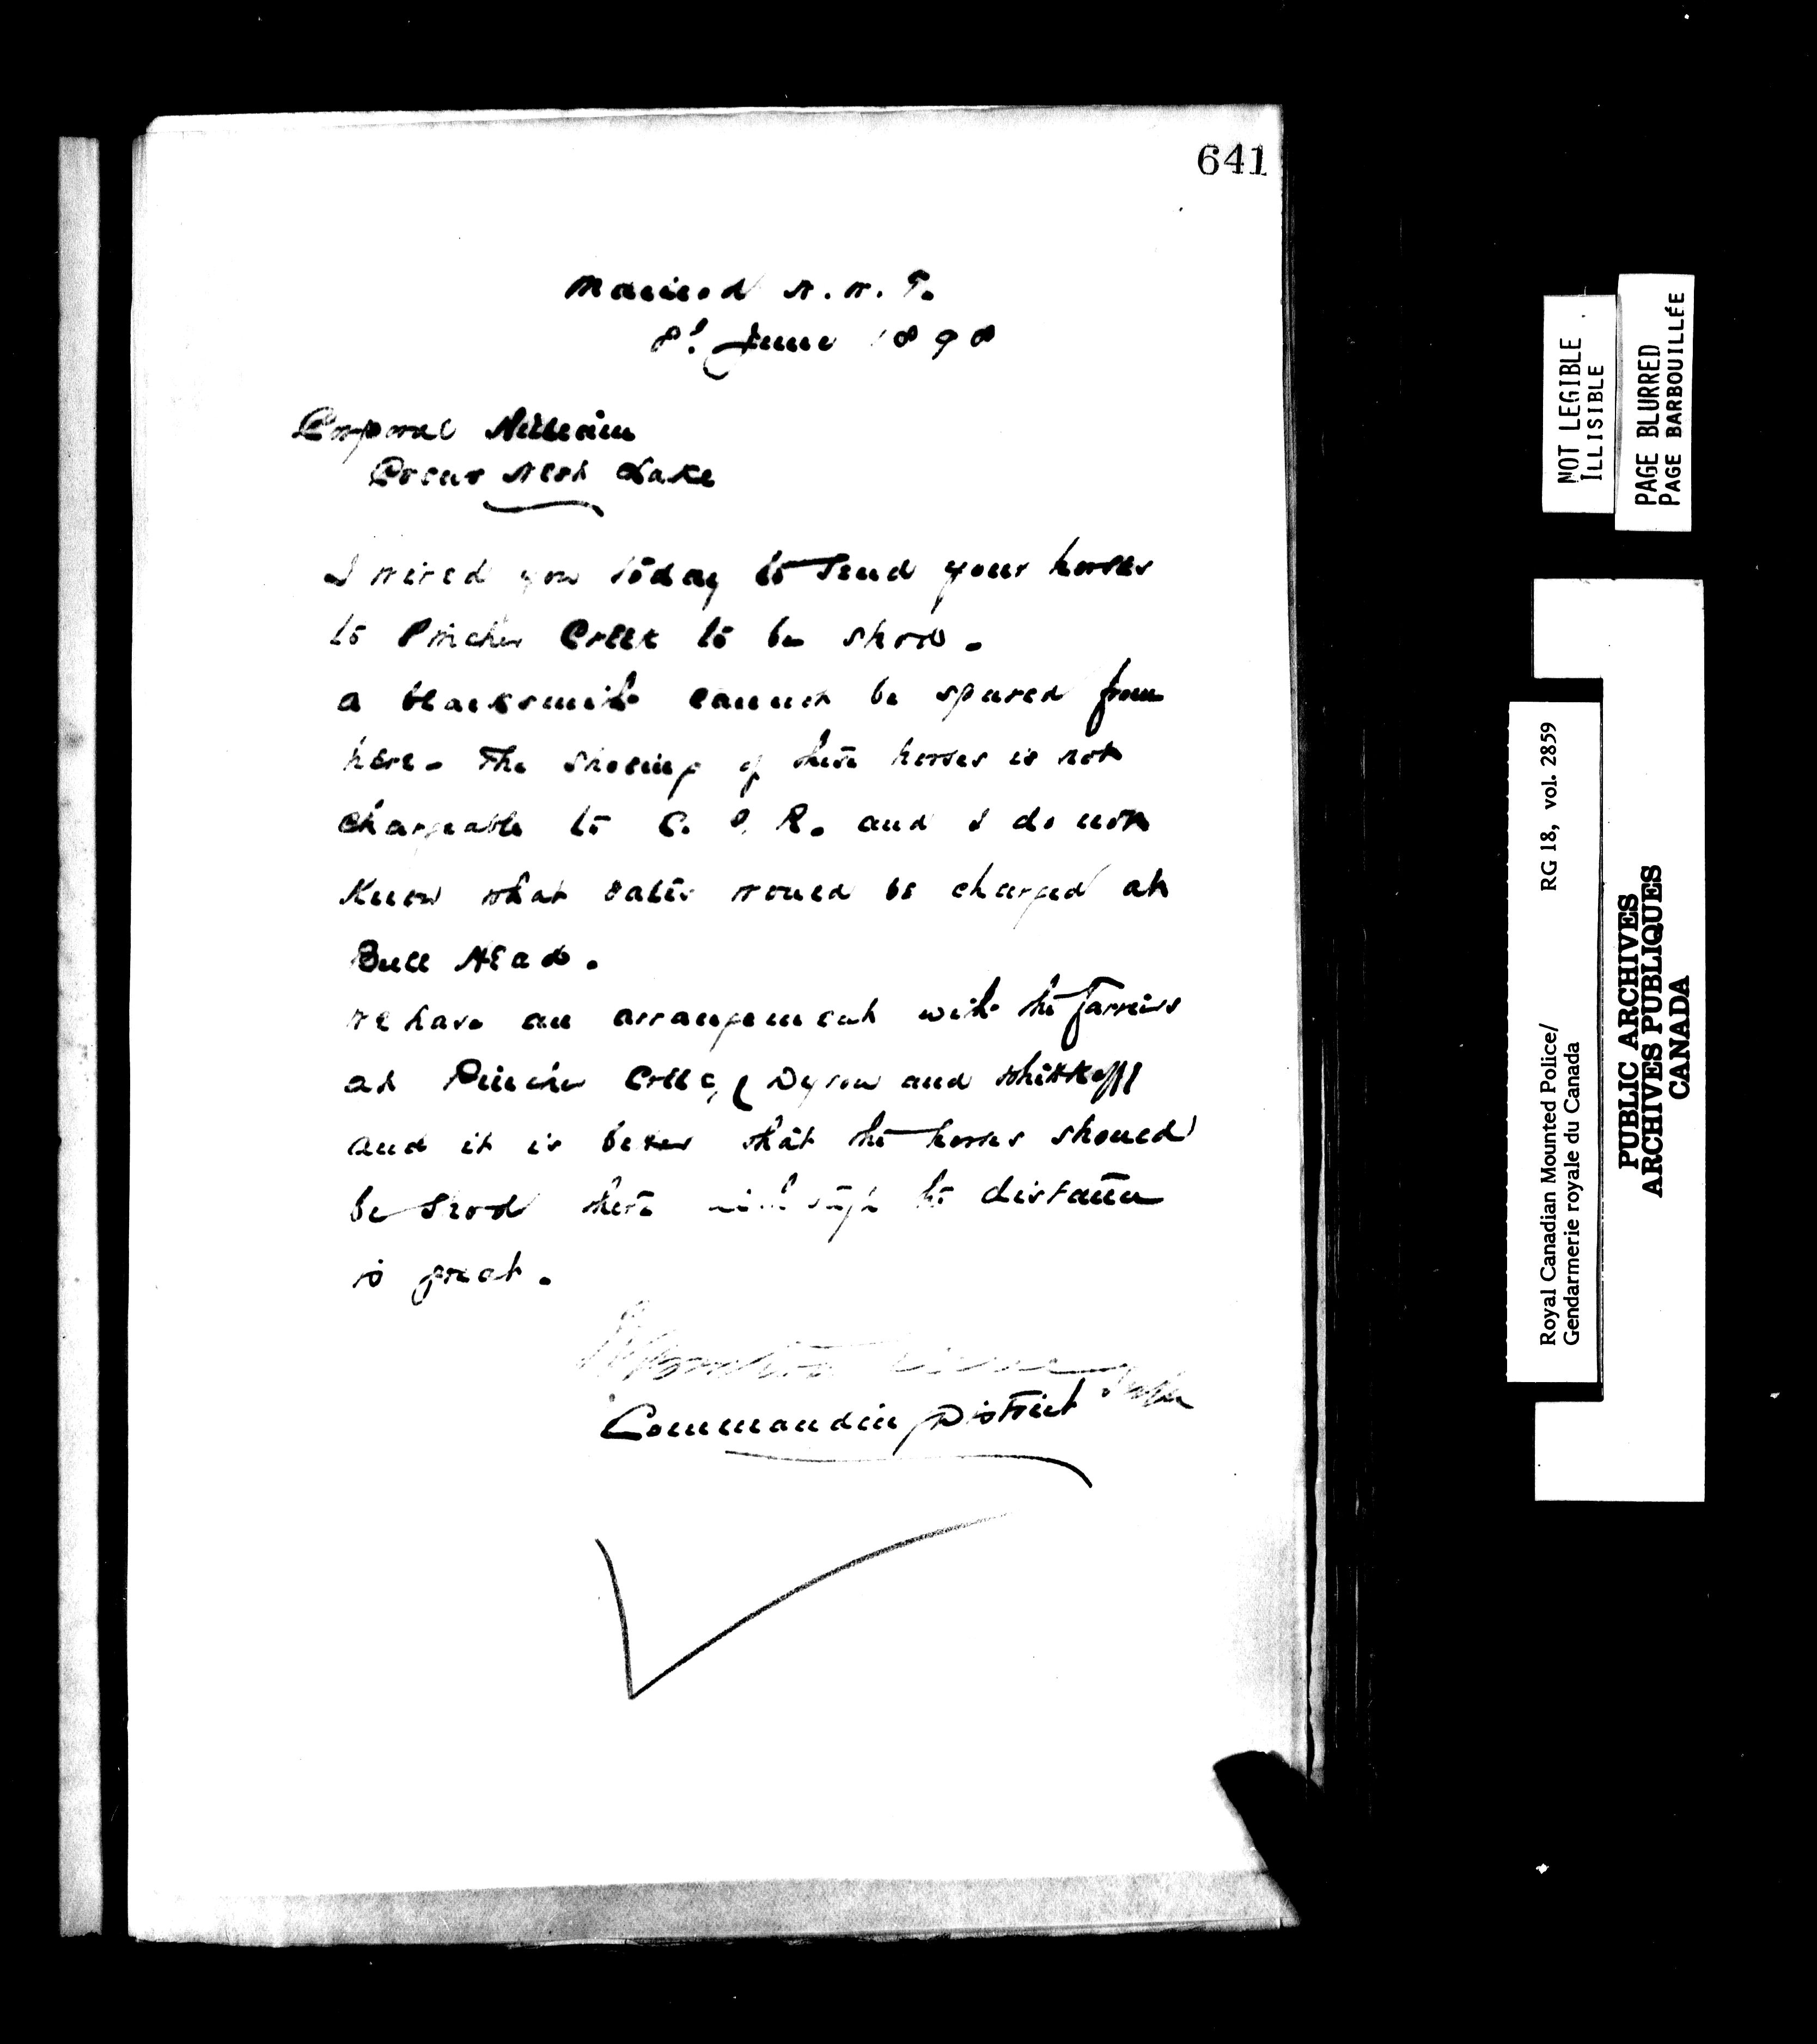 641
Macleod N. W. T.
8th June 1898
Corporal
Crows Nest Lake
I wired you today to send your horses
to Pincher Creek to be shod.
A blacksmith cannot be spared from
here. The shoeing of these horses is not
chargeable to C. P. R. and I do not
know what rates would be charged at
Bull Head.
We have an arrangement with the farriers
at Pincher Creek, (Dyson and
and it is better that the horses should
be shod there although the distance
is great.
Commanding District
NOT LEGIBLE
ILLISIBLE
PAGE BLURRED
PAGE BARBOUILLÉE
Royal Canadian Mounted Police/ RG 18, vol. 2859
Gendarmerie royale du Canada
PUBLIC ARCHIVES
ARCHIVES PUBLIQUES
CANADA